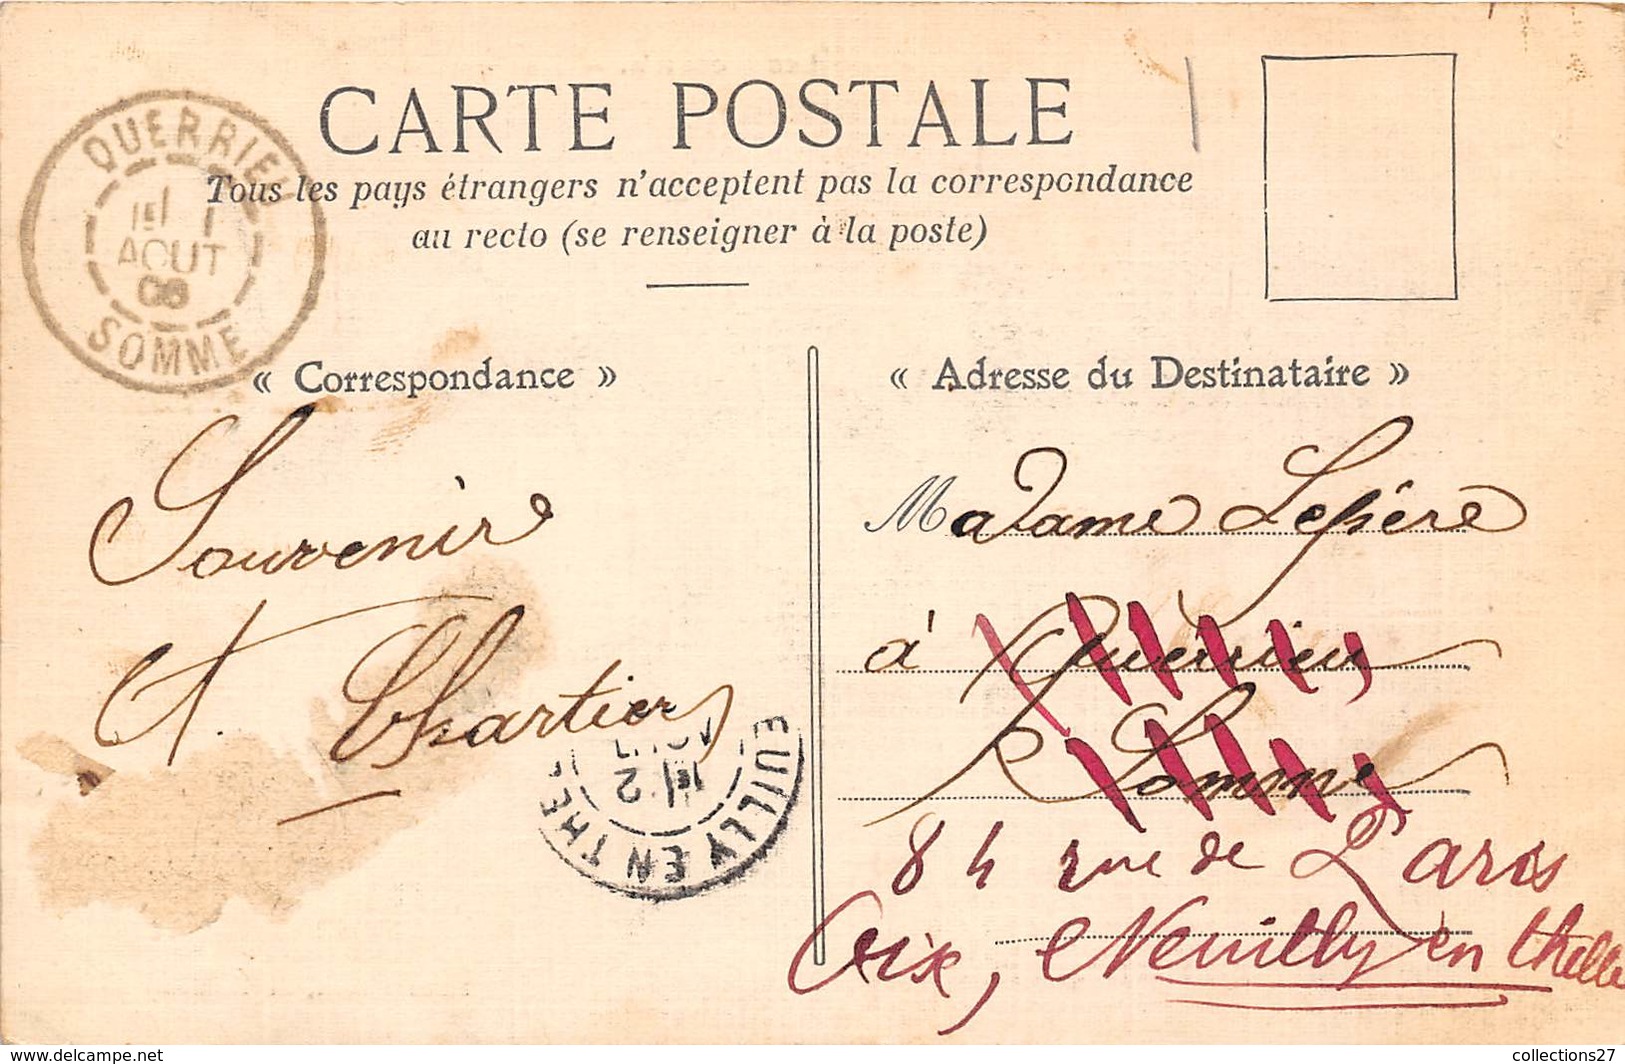 CARTE POSTALE
Tous les pays étrangers n'acceptent pas la correspondance
au recto (se renseigner à la poste)
QUERRIEU
1E/ 1
AOUT
08
SOMME
« Correspondance »
« Adresse du Destinataire »
Souvenir
A. Chartier
Madame Lepère
à Querrieu
Somme
84 rue de Paris
Neuilly en Thelle
NEUILLY EN THELLE
1E/ 2
AOUT
www.delcampe.net
collections27